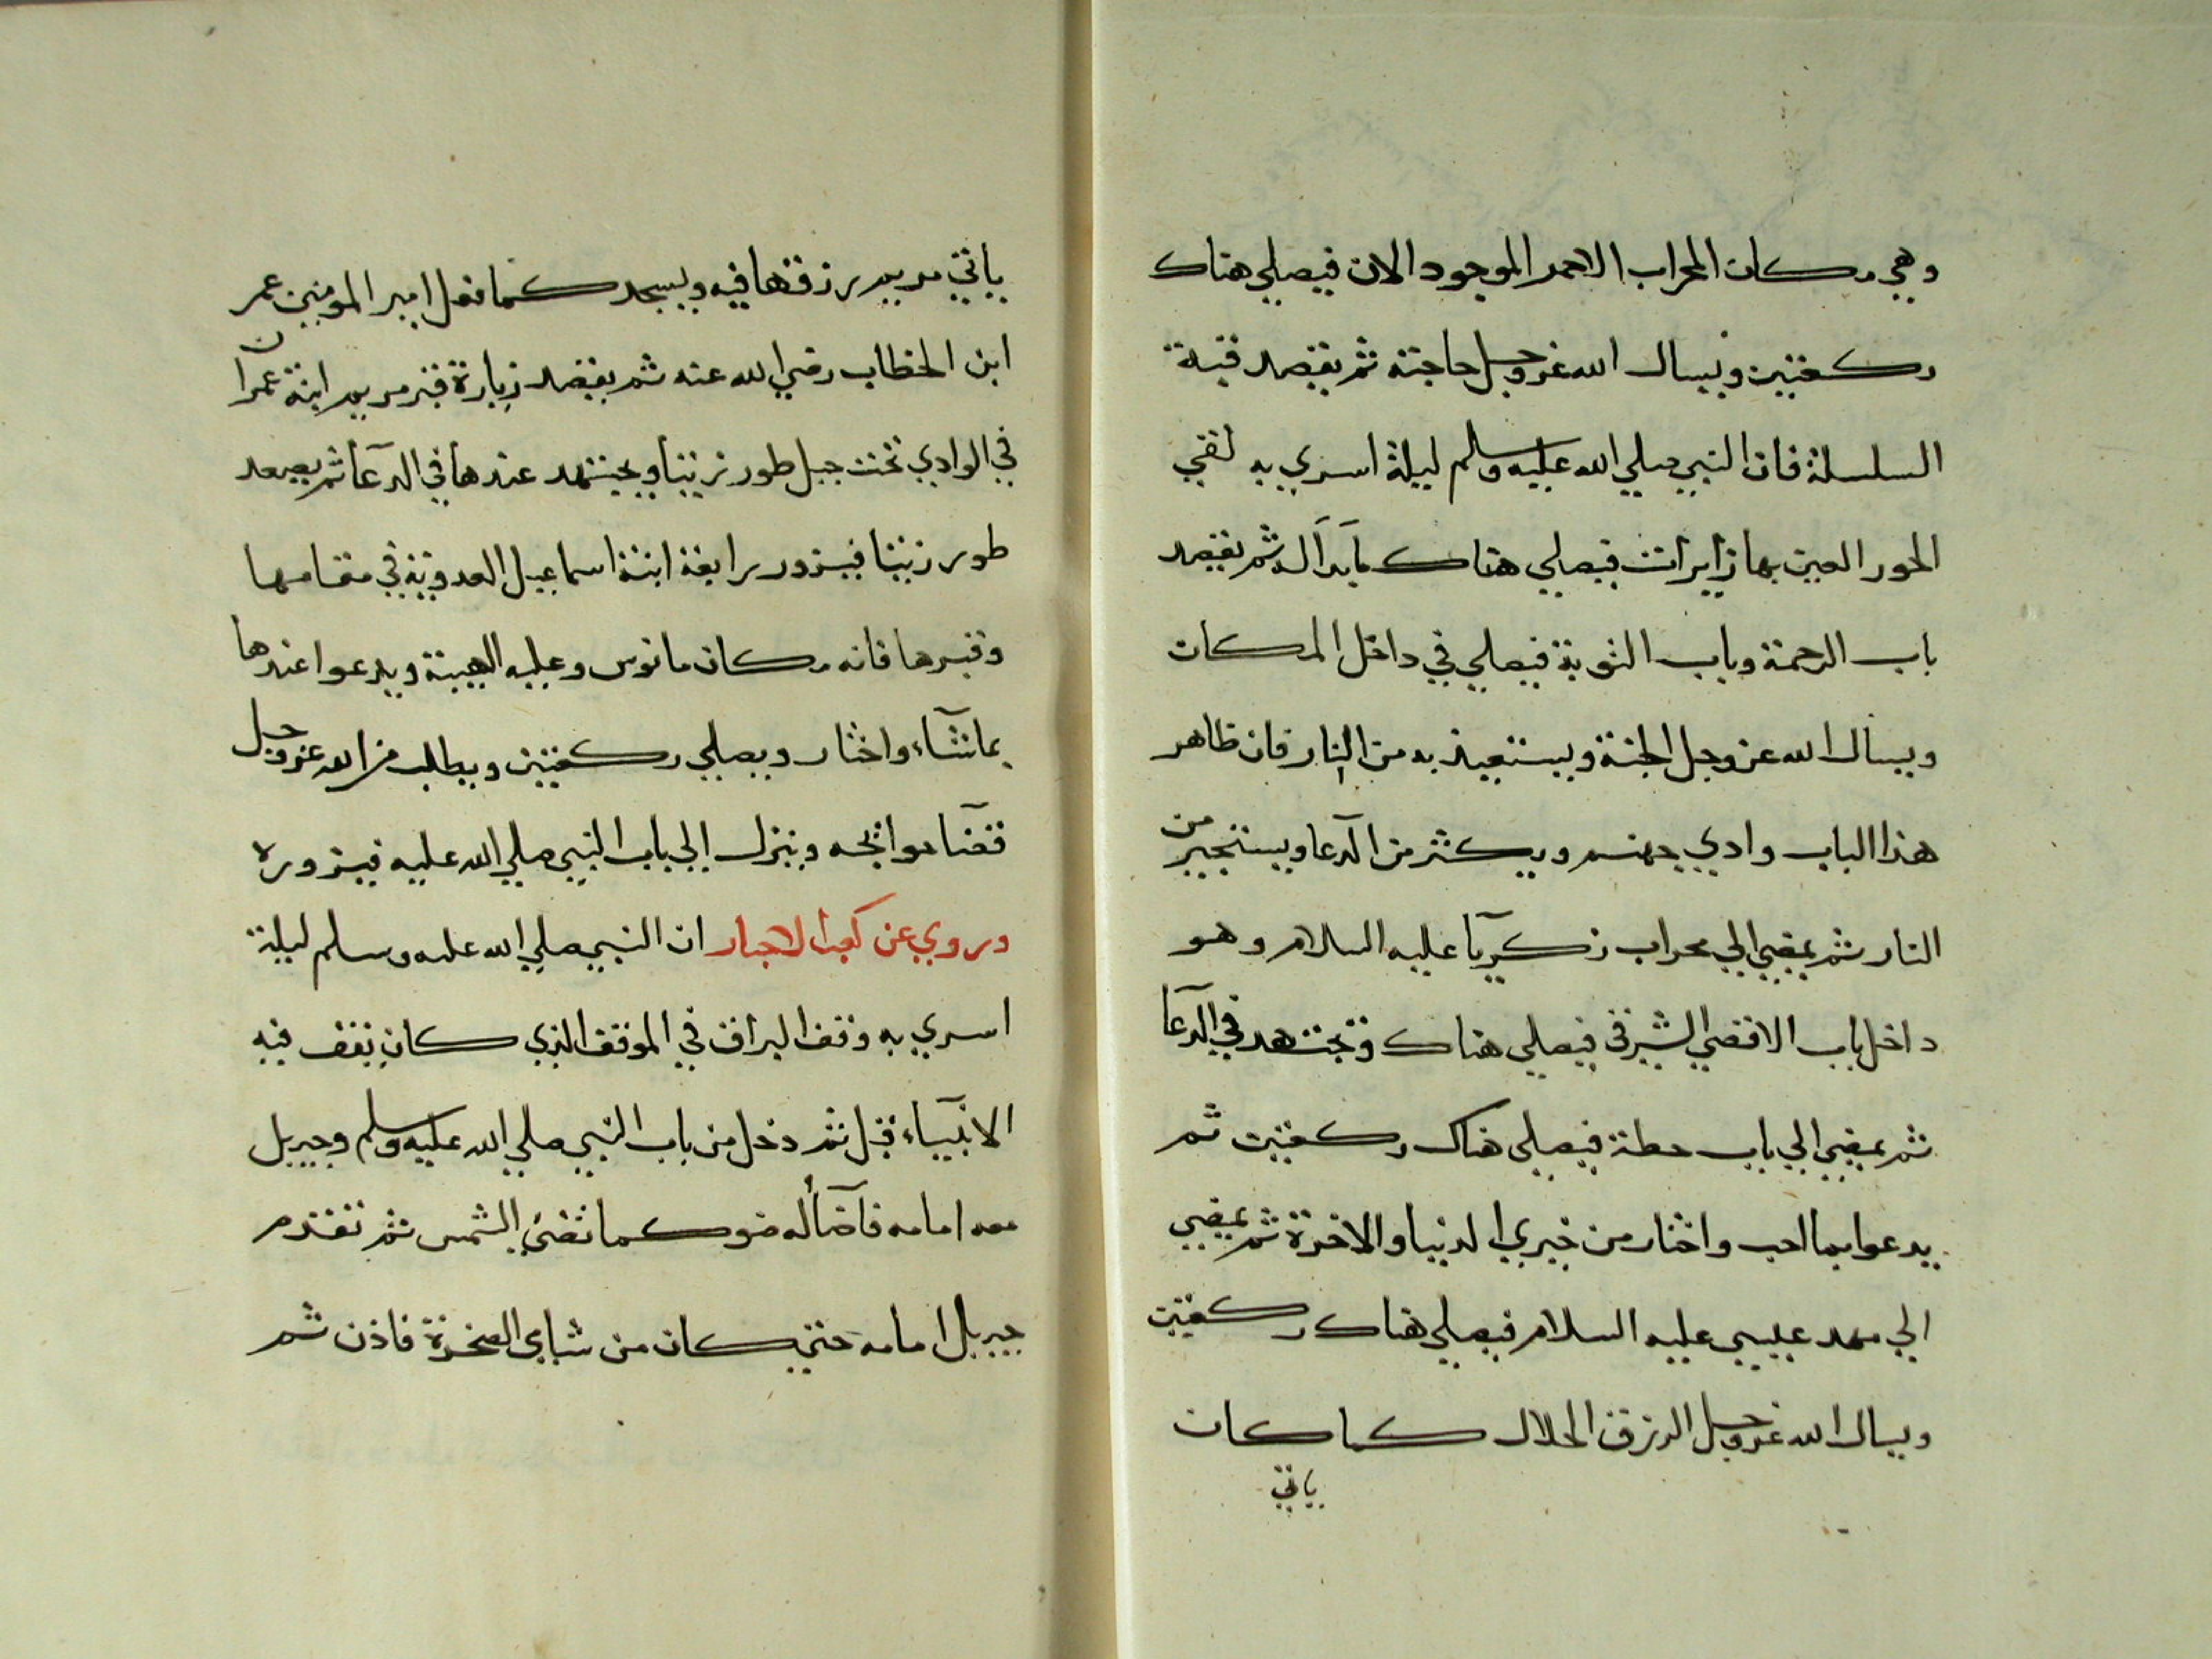 وهي مكان المحراب الاحمر الموجود الان فيصلي هناك
ركعتين ويسال الله عز وجل حاجته ثم يقصد قبة
السلسلة فان النبي صلي الله عليه وسلم ليلة اسري به لقي
الحور العين بها زايرات فيصلي هناك ثم يقصد
باب الرحمة وباب التوبة فيصلي في داخل المكان
ويسال الله عز وجل الجنة ويستعيذ به من النار فان ظاهر
هذا الباب وادي جهنم ويكثر من الدعا ويستجير من
النار ثم يمضي الي محراب زكريا عليه السلام وهو
داخل باب الاقصي الشرقي فيصلي هناك وتجتهد في الدعا
ثم يمضي الي باب حطة فيصلي هناك ركعتين ثم
يدعوا بما احب واختار من خيري الدنيا والاخرة ثم يمضي
الي مهد عيسي عليه السلام فيصلي هناك ركعتين
ويسال الله عز وجل الرزق الحلال كما كان
ياتي
ياتي مريم رزقها فيه ويسجد كما فعل امير المومنين عمر
ابن الخطاب رضي الله عنه ثم يقصد زيارة قبر مريم ابنة عمران
في الوادي تحت جبل طور زيتا ويجتهد عندها في الدعا ثم يصعد
طور زيتا فيزور رابعة ابنة اسماعيل العدوية في مقامها
وقبرها فانه مكان مانوس وعليه الهيبة ويدعوا عندها
بما شاء واختار ويصلي ركعتين ويطلب من الله عز وجل
قضآ حوائجه وينزل الي باب النبي صلي الله عليه فيزوره
وروي عن كعب الاحبار ان النبي صلي الله عليه وسلم ليلة
اسري به وقف البراق في الموقف الذي كان يقف فيه
الانبياء قبل ثم دخل من باب النبي صلي الله عليه وسلم وجبريل
معه امامه فاضآ له ضو كما تضي الشمس ثم تقدم
جبريل امامه حتي كان من شباي الصخرة فاذن ثم